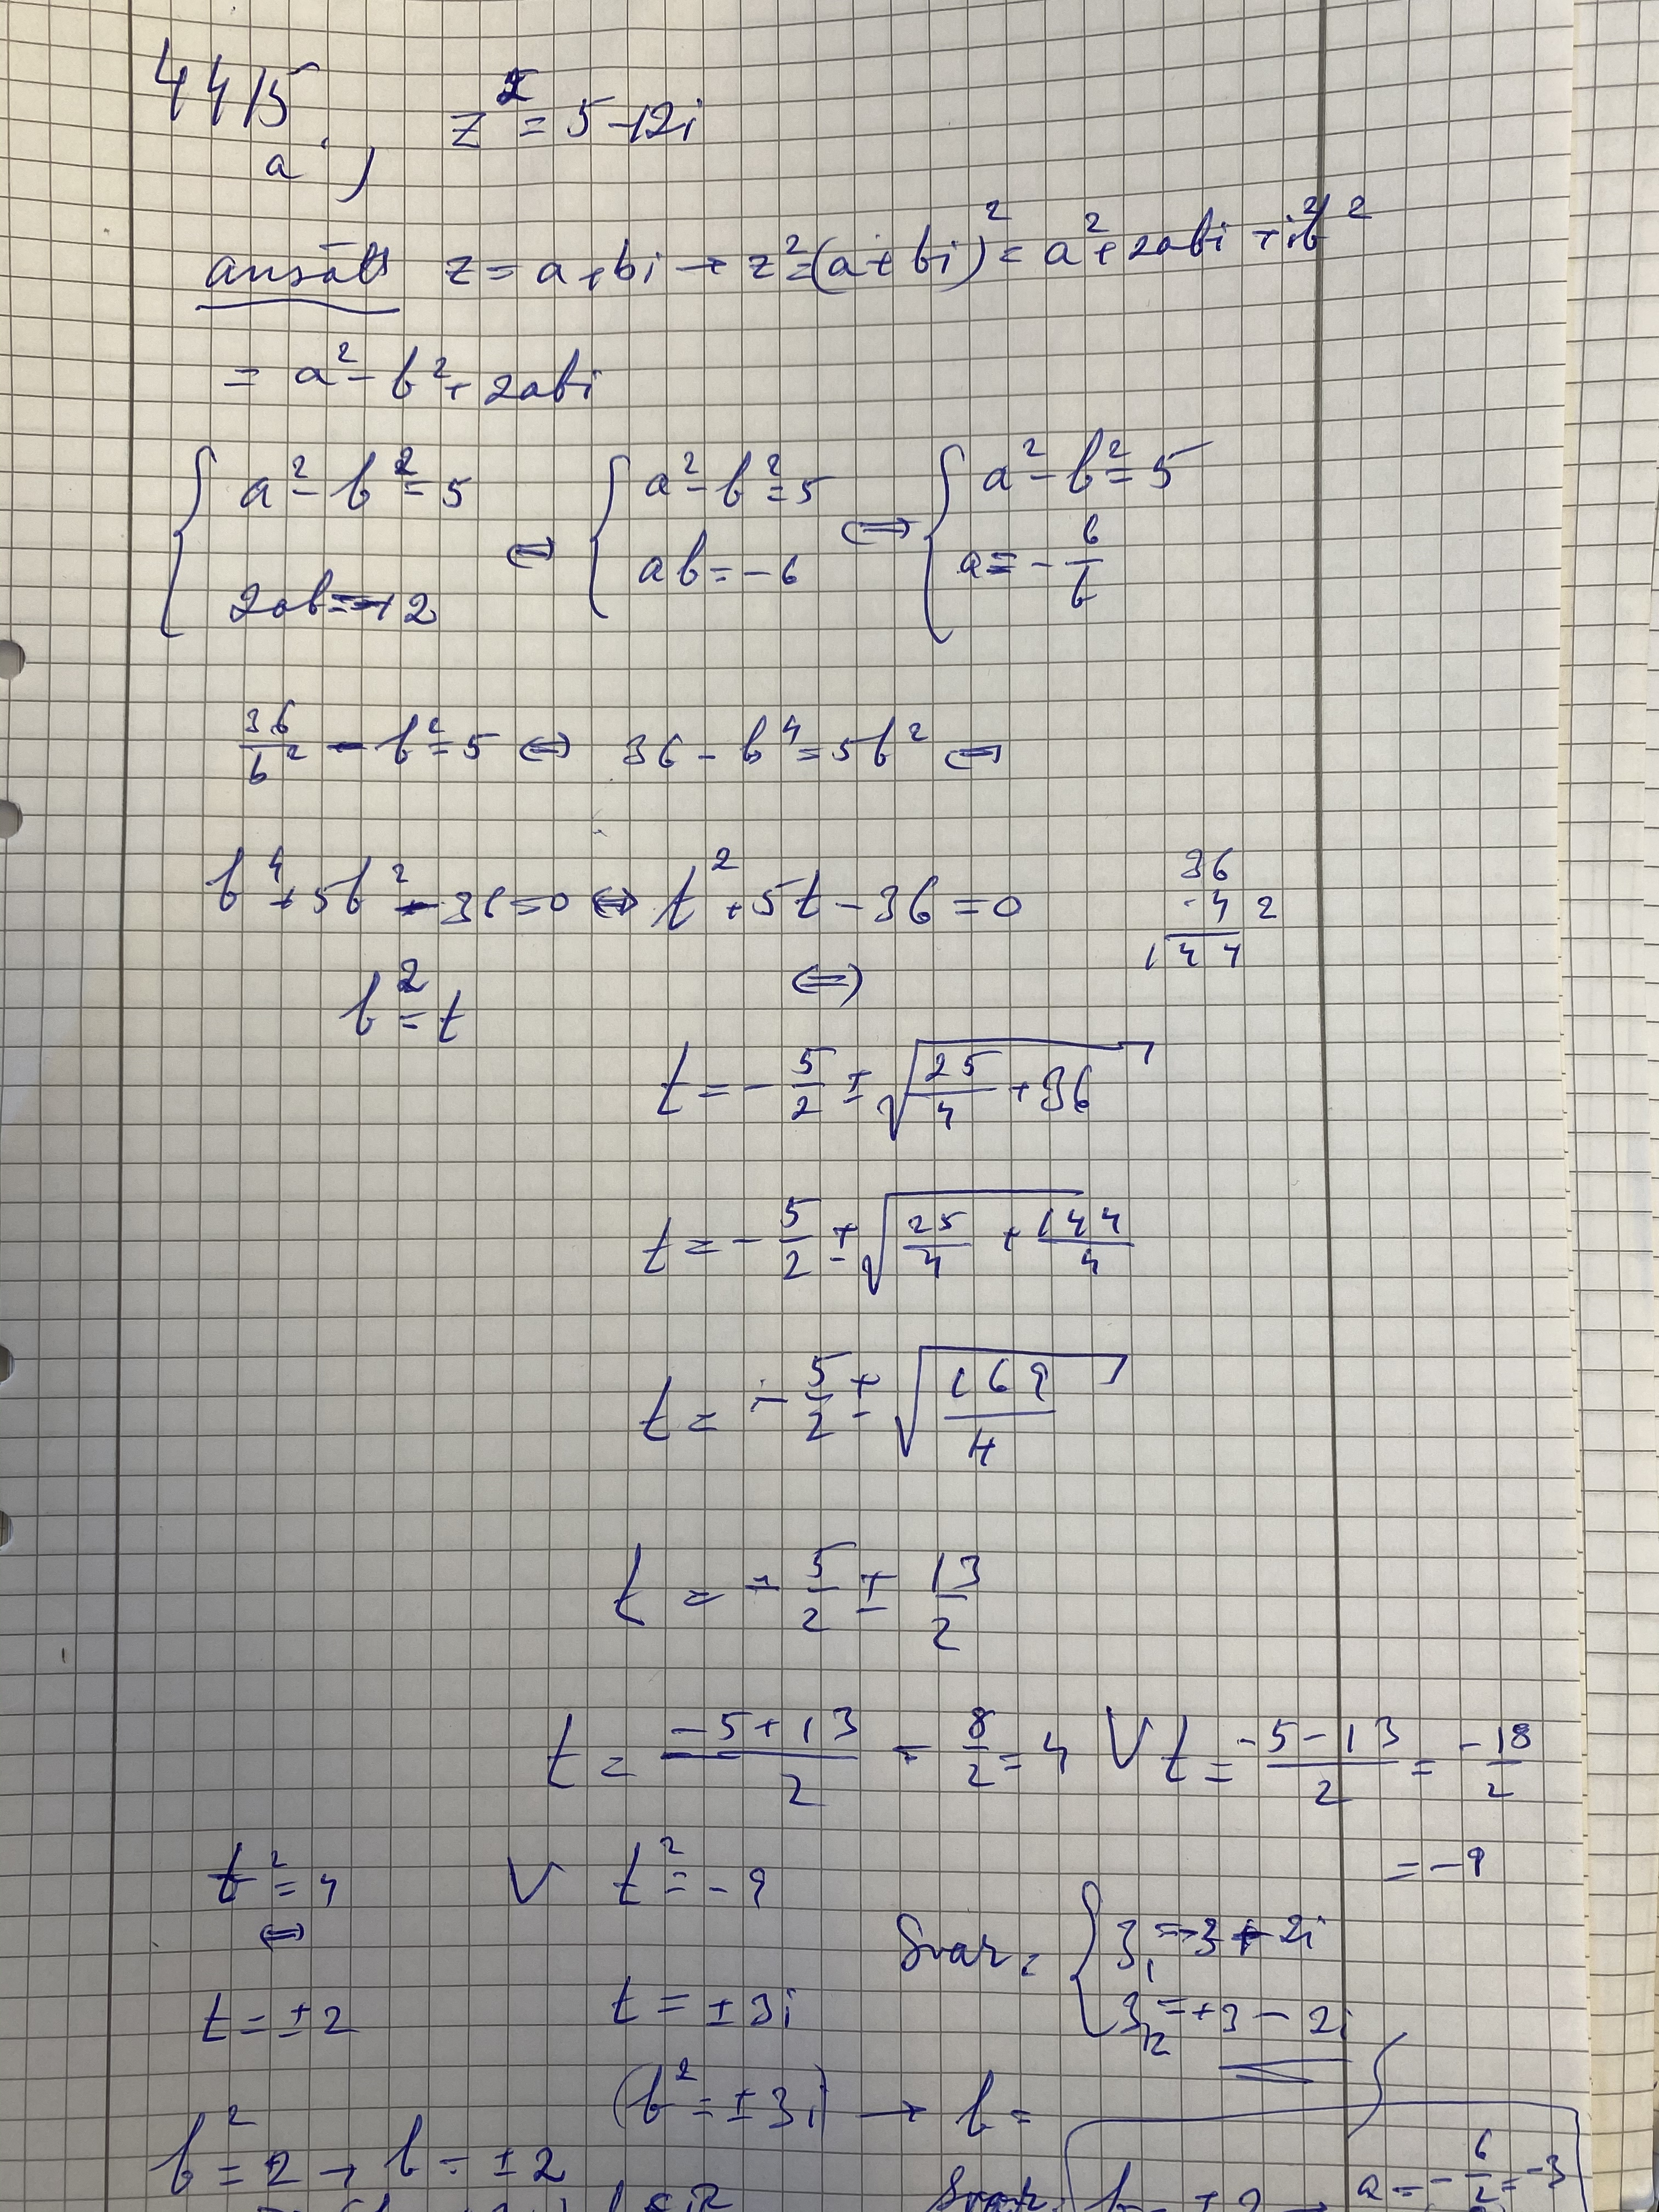 4415.
a) z² = 5-12i
ansätt z = a+bi → z²=(a+bi)² = a²+2abi+i²b²
= a²-b²+2abi
{ a²-b²=5 ⇔ { a²-b²=5 ⇔ { a²-b²=5
2ab=-12 ab=-6 a=-6/b
36/b² - b²=5 ⇔ 36-b⁴=5b² ⇔
36
b⁴+5b²-36=0 ⇔ t²+5t-36=0 ·4 2
144
b²=t ⇔
t=-5/2±√(25/4+36)
t=-5/2±√(25/4+144/4)
t=-5/2±√(169/4)
t=-5/2±13/2
t=(-5+13)/2=8/2=4 V t=(-5-13)/2=-18/2
=-9
t²=4 V t²=-9
⇔ Svar: { z₁=-3+2i
t=±2 t=±3i z₂=+3-2i
(b²=±3i) → b=
b²=2→b=±2 a=-6/2=-3